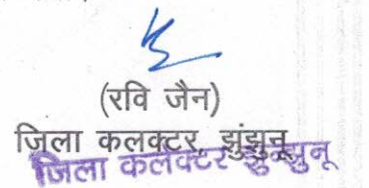 (रवि जैन)
जिला कलक्टर, झुंझुनू
जिला कलक्टर झुन्झुनू